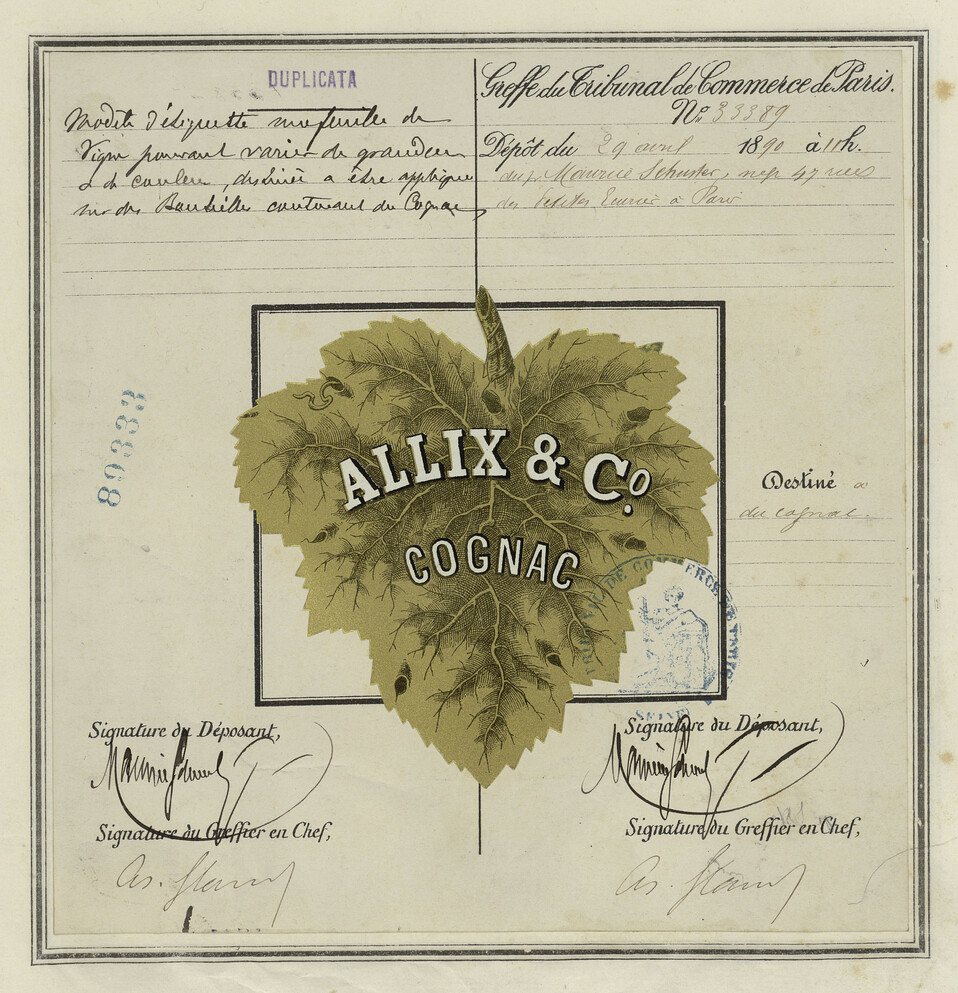 DUPLICATA
Modèle d'étiquette feuille de
Vigne pouvant varier de grandeur
& de couleur, destinée a être appliquée
sur des Bouteilles contenant du Cognac
Greffe du Tribunal de Commerce de Paris.
No. 33389
Dépôt du 29 avril 1890 à 11 h.
Maurice Schuster, 47 rue
des Petites Ecuries à Paris
89333
ALLIX & Co.
COGNAC
Destiné a
du cognac.
DE COMMERCE DE PARIS
SEINE
Signature du Déposant,
Signature du Greffier en Chef,
Signature du Déposant,
Signature du Greffier en Chef,